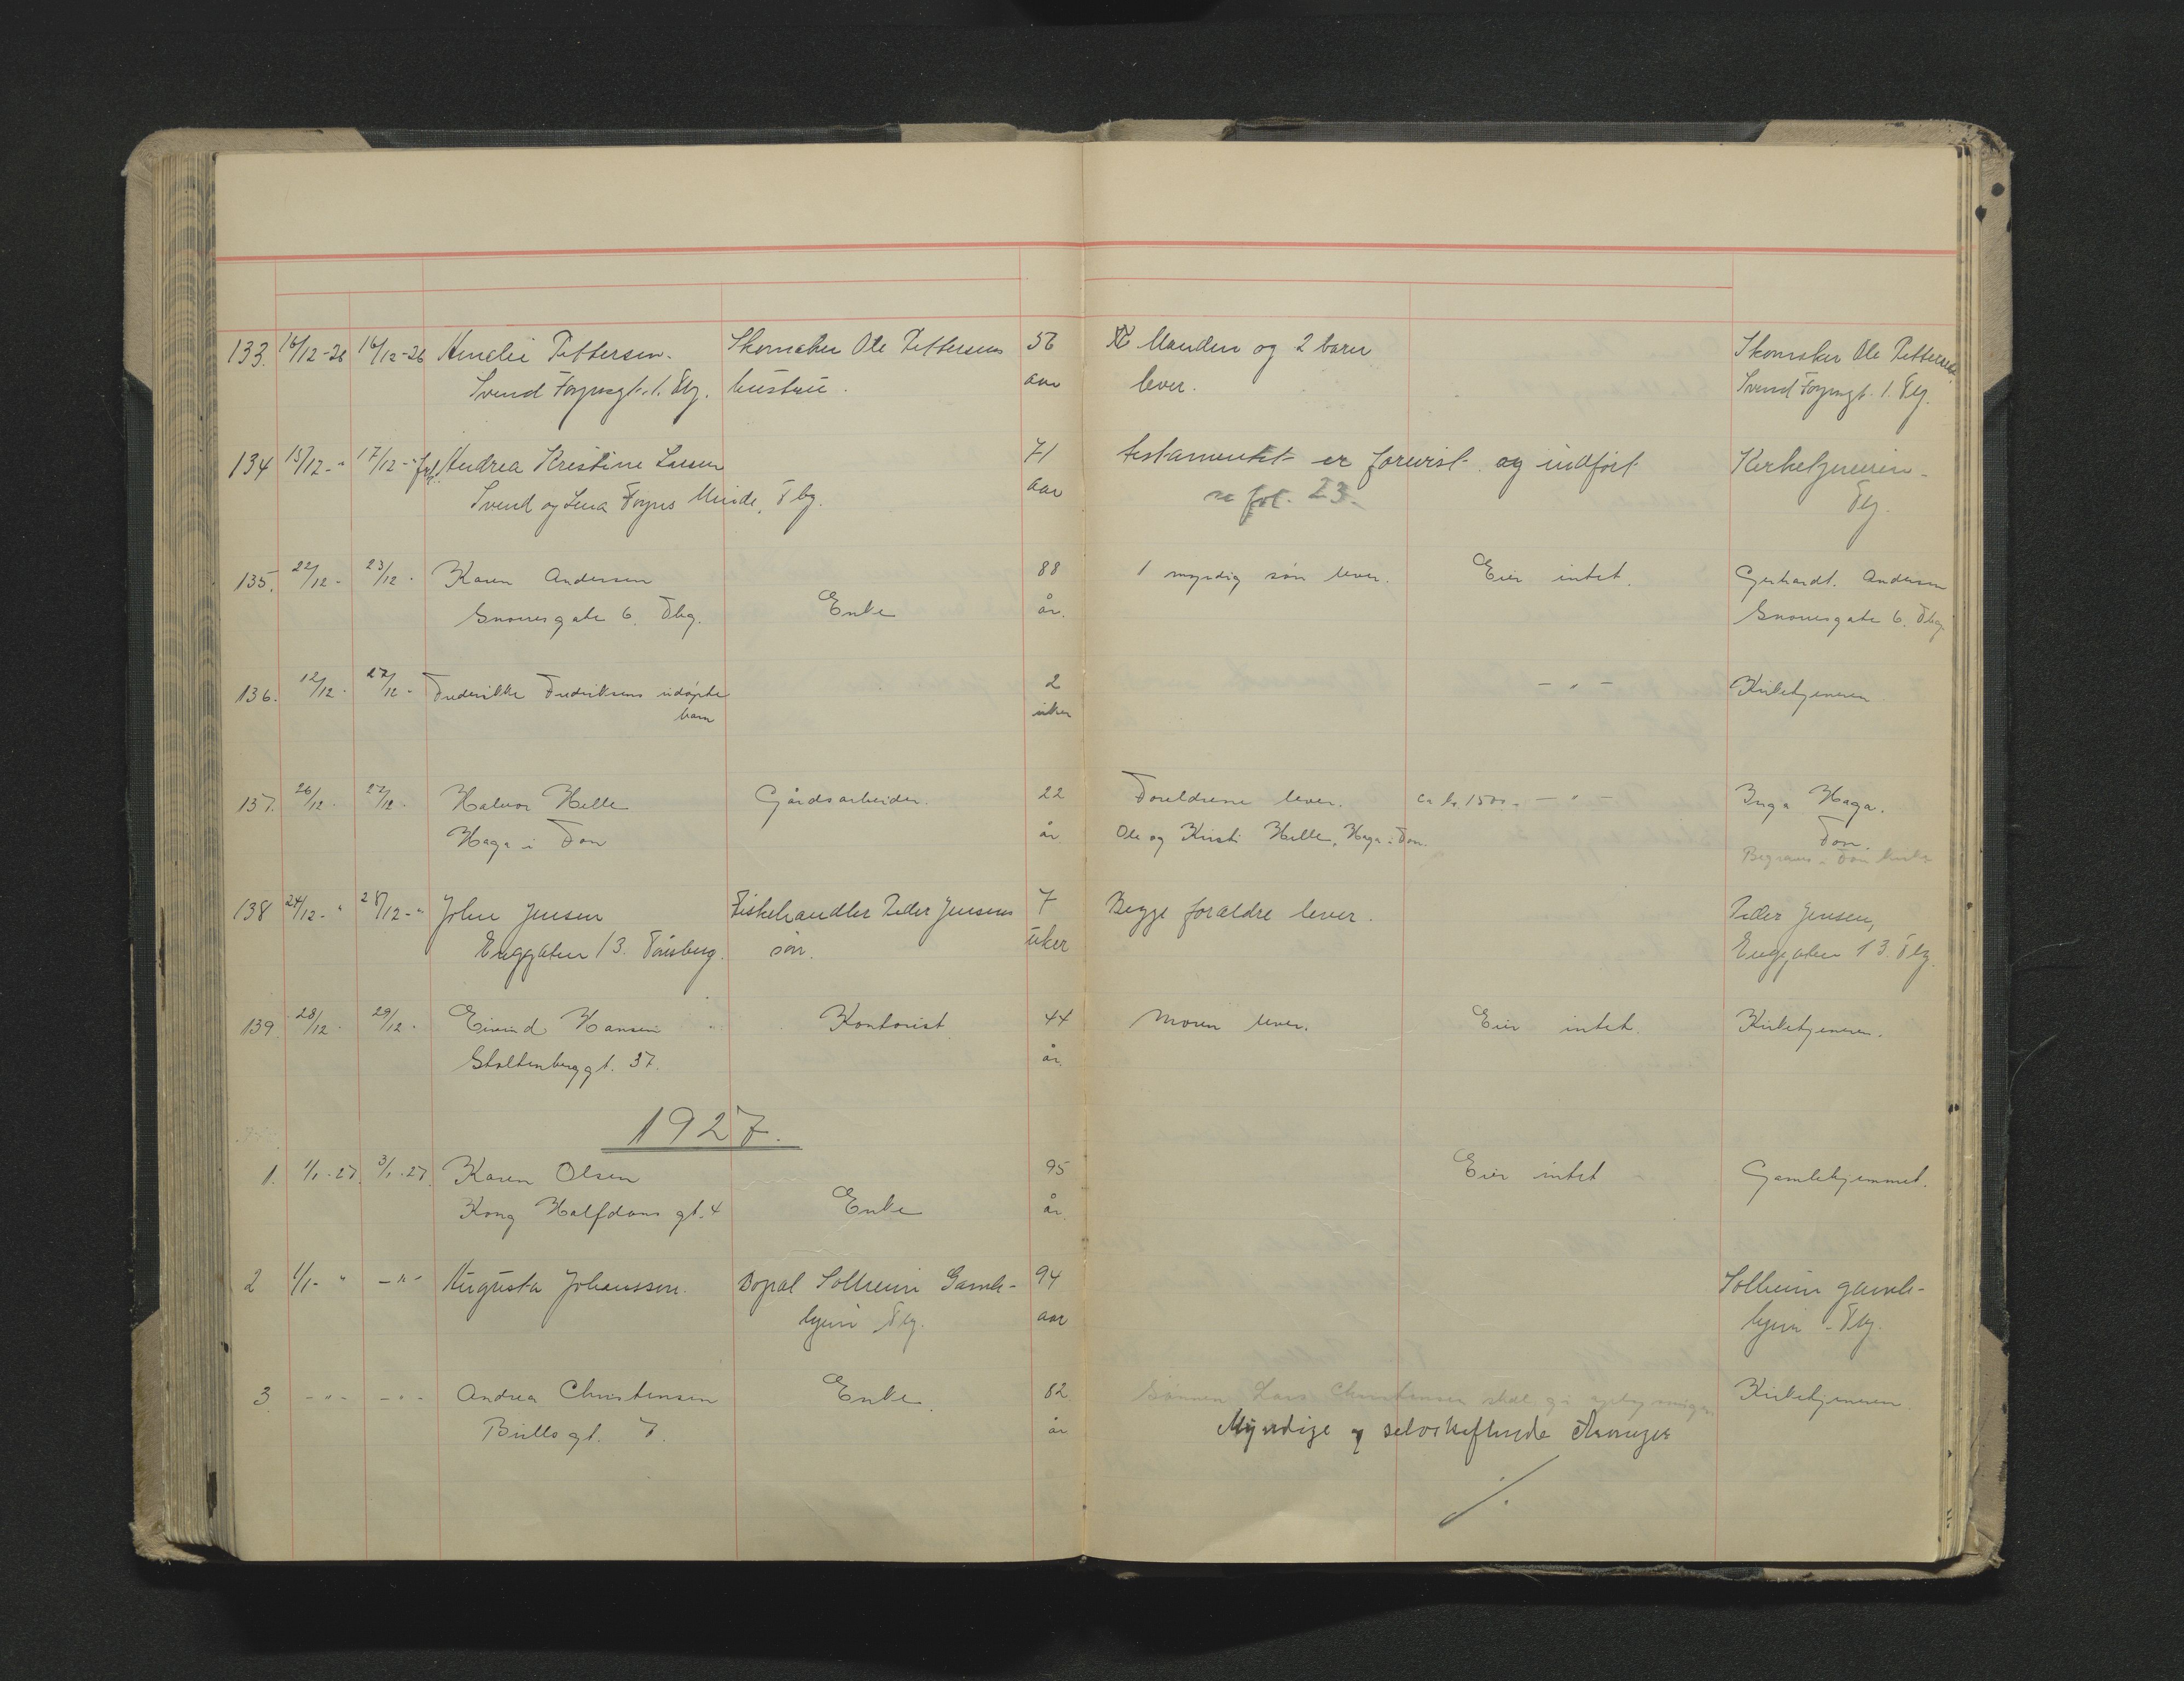 133. 16/12-26 16/12-26 Amalie Pettersen. Skomaker Ole Pettersens 56 Manden og 2 barn Skomaker Ole Pettersen
Svend Foynsgt. 1. Tbg. hustru. aar lever. Svend Foynsgt. 1. Tbg.
134 15/12-" 17/12-" frk. Andrea Kristine Larsen 71 testamentet er forevist og indført Kirketjeneren-
Svend og Lena Foyns Minde, Tbg. aar se fol. 23. Tbg.
135. 22/12- 23/12- Karen Andersen 88 1 myndig søn lever. Eier intet. Gerhardt. Andersen
Snorresgate 6. Tbg. Enke år. Snorresgate 6. Tbg.
136. 12/12- 27/12- Frederikke Fredriksens udøpte 2 - " - Kirketjeneren
barn uker
137. 26/12- 27/12- Halvor Helle Gårdsarbeider. 22 Foreldrene lever. ca kr. 1500.- - " - Inga Haga.
Haga i Fon år Ole og Kirsti Helle, Haga i Fon. Fon.
Begraves i Fon kirke
138 24/12-" 28/12-" John Jensen Fiskehandler Peder Jensens 7 Begge forældre lever. Peder Jensen,
Enggaten 13. Tønsberg. søn. uker Enggaten 13. Tbg.
139 28/12- 29/12- Eivind Hansen Kontorist 44 Moren lever. Eier intet. Kirketjeneren.
Stoltenberggt. 37. år.
1927.
1. 1/1-27. 3/1-27. Karen Olsen 95 Eier intet Gamlehjemmet.
Kong Halfdans gt. 4 Enke år.
2 1/1-" -"- Augusta Johanssen. Bopæl Solheim Gamle- 94 Solheim gamle-
hjem Tbg. aar hjem - Tbg.
3. -"- -"- Andrea Christensen Enke. 82 Sønnen Lars Christensen skal gi Kirketjeneren.
Bulls gt. 7. år Myndige og selvskiftende Arvinger